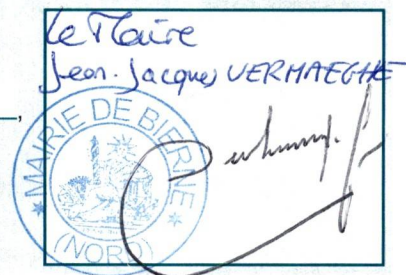 Le Maire
Jean-Jacques VERMAEGHE
MAIRIE DE BIERNE
(NORD)